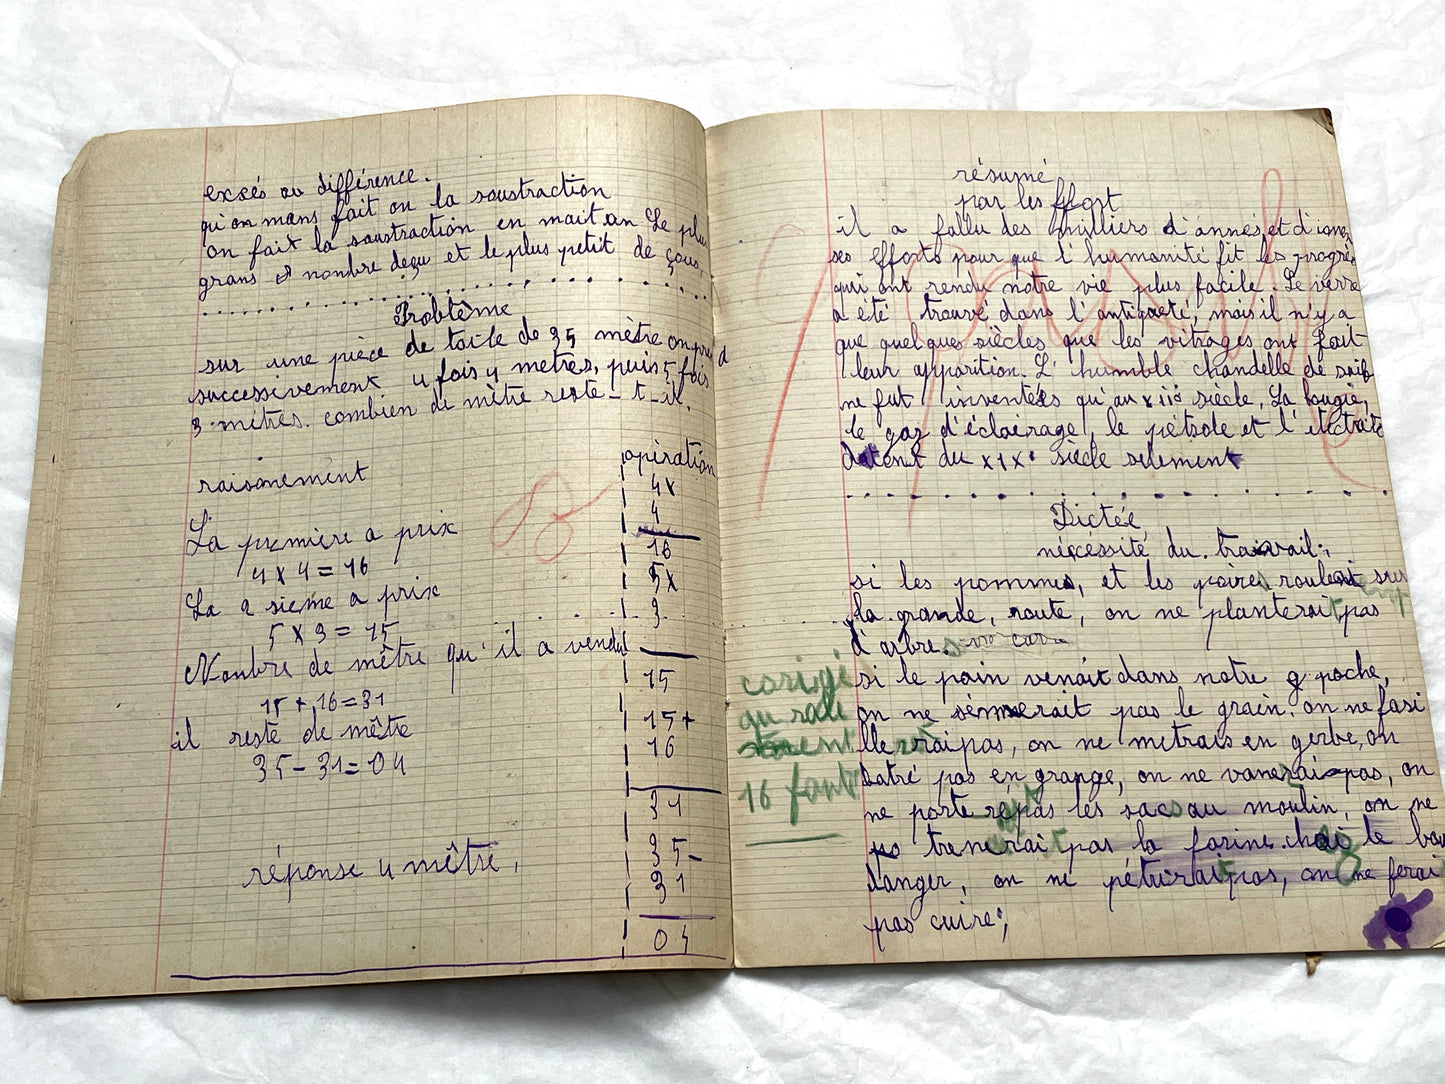 excès ou différence.
qu'on mans fait on la soustraction
on fait la soustraction en mait an Le plus
grans nombre deçu et le plus petit de çous,
Problème
sur une pièce de toile de 35 mètre on prend
successivement 4 fois 4 metres, puis 5 fois
3 mètres. combien de mètre reste-t-il.
raisonement
La première a prix
4 x 4 = 16
La 2 sieme a prix
5 x 3 = 15
Nombre de mêtre qu'il a vendu
15 + 16 = 31
il reste de mêtre
35 - 31 = 04
réponse 4 mêtre,
opiration
4x
4
16
5x
3
15
15+
16
31
35-
31
04
résumé
par les ffort
il a fallu des milliers d'annés et d
ses efforts pour que l'humanité fit les progrès
qui ont rendu notre vie plus facile. Le verre
a été trouvé dans l'antiqueté, mais il n'y a
que quelques siècles que les vitrages ont fait
leur apparition. L'humble chandelle de suif
ne fut inventées qu'au siècle, La bougie,
le gaz d'éclairage, le pétrole et l'
datent du XIX° siècle selement
Dictée
nécéssité du travail:
si les pommes, et les poires roulait sur
la grande, route, on ne planterait pas
d'arbres
si le pain venait dans notre poche,
on ne sémerait pas le grain. on ne fasi
llerait pas, on ne metrais en gerbe, on
batré pas en grange, on ne vanerai pas, on
ne porterépas les sacs au moulin, on ne
trenerait pas la farine chez le bou
langer, on ne pétrirait pas, on ne ferai
pas cuire;
corigé
16 fautes